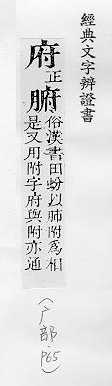 經典文字辨證書
府正腑俗漢書田蚡以肺附爲相
是又用附字府與附亦通
(广部·P65)